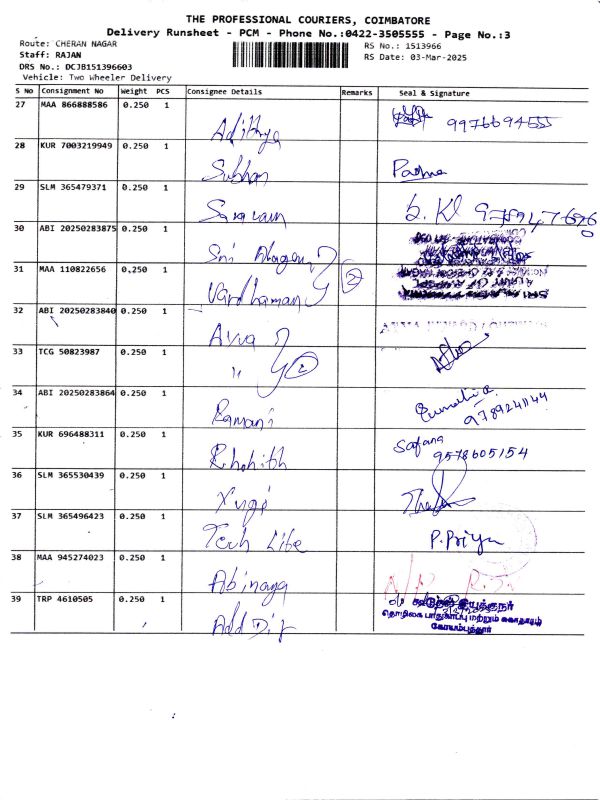 THE PROFESSIONAL COURIERS, COIMBATORE
Delivery Runsheet - PCM - Phone No.:0422-3505555 - Page No.:3
Route: CHERAN NAGAR
RS No.: 1513966
Staff: RAJAN
RS Date: 03-Mar-2025
DRS No.: DCJB151396603
Vehicle: Two Wheeler Delivery
S No Consignment No Weight PCS Consignee Details Remarks Seal & Signature
27 MAA 866888586 0.250 1 Adithya 9976694555
28 KUR 7003219949 0.250 1 Subhan Padma
29 SLM 365479371 0.250 1 Saravam
30 ABI 20250283875 0.250 1 Sri
31 MAA 110822656 0.250 1 Vardhaman 2
32 ABI 20250283840 0.250 1
33 TCG 50823987 0.250 1 " 2
34 ABI 20250283864 0.250 1 Ramani 9789241144
35 KUR 696488311 0.250 1 Rhohith Safana 9578605154
36 SLM 365530439 0.250 1 Yugi
37 SLM 365496423 0.250 1 Tech Life P.Priya
38 MAA 945274023 0.250 1 Abinaya
39 TRP 4610505 0.250 1 Add Dir
இயக்குநர்
தொழிலக பாதுகாப்பு மற்றும் சுகாதாரம்
கோயம்புத்தூர்